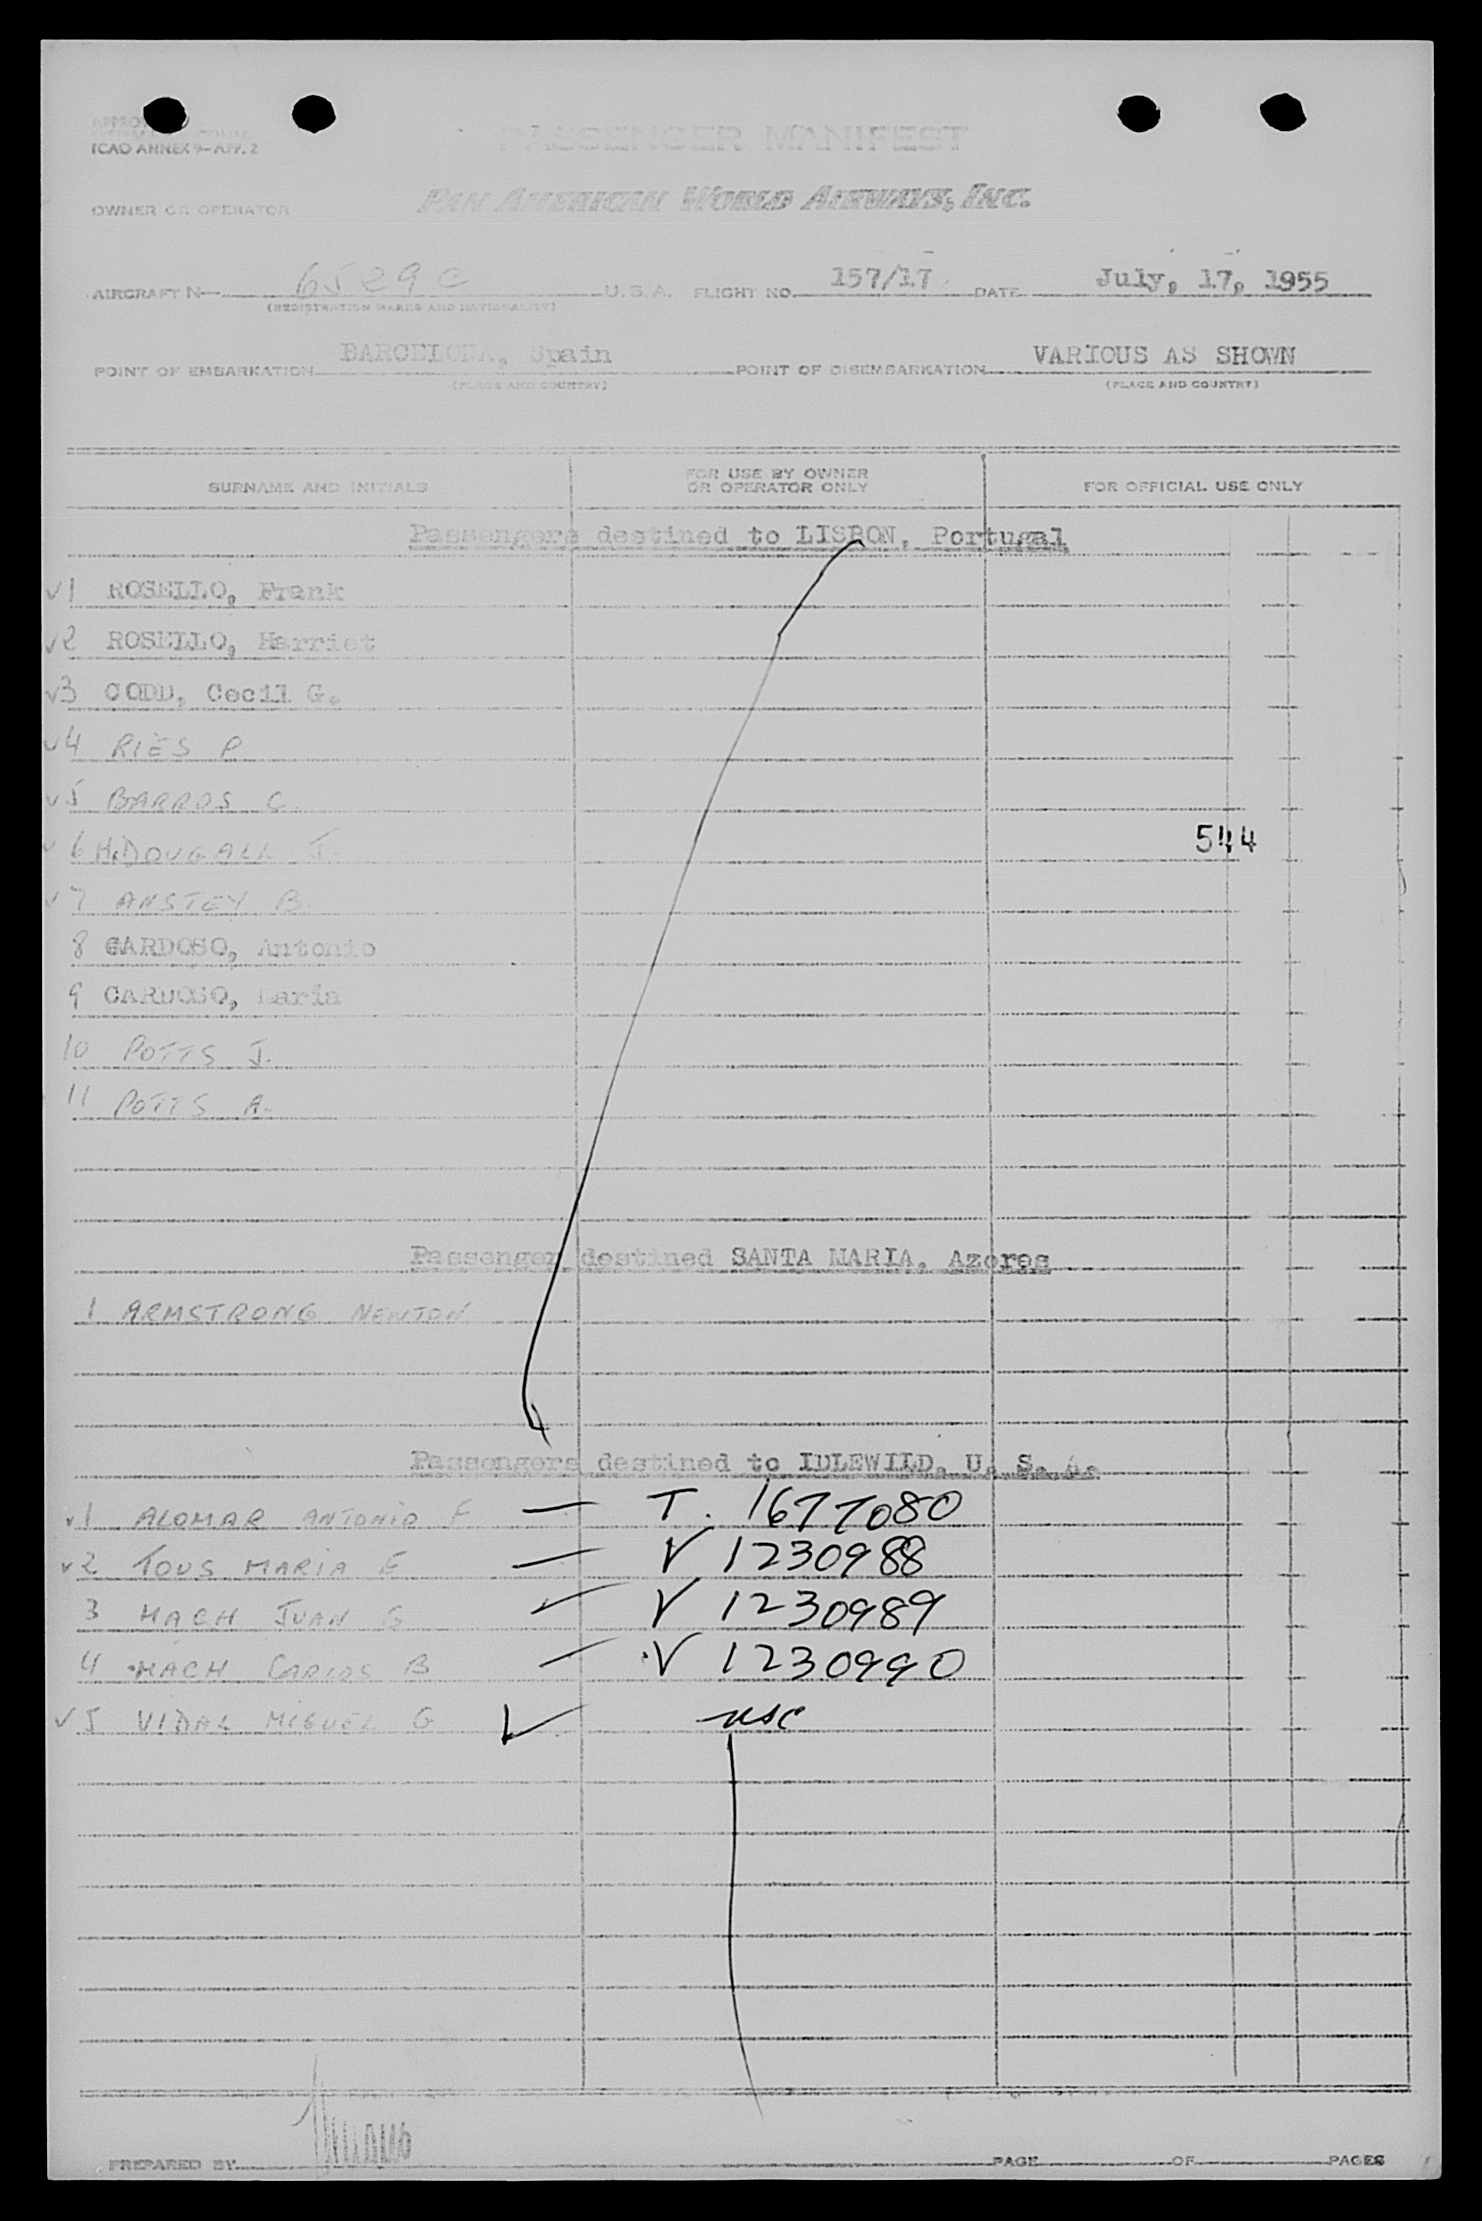 ICAO ANNEX 9-APP. 2
PASSENGER MANIFEST
OWNER OR OPERATOR
PAN AMERICAN WORLD AIRWAYS, INC.
AIRCRAFT N— 6529C U. S. A. FLIGHT NO. 157/17 DATE July, 17, 1955
(REGISTRATION MARKS AND NATIONALITY)
POINT OF EMBARKATION BARCELONA, Spain POINT OF DISEMBARKATION VARIOUS AS SHOWN
(PLACE AND COUNTRY) (PLACE AND COUNTRY)
SURNAME AND INITIALS FOR USE BY OWNER OR OPERATOR ONLY FOR OFFICIAL USE ONLY
Passengers destined to LISBON, Portugal
✓1 ROSELLO, Frank
✓2 ROSELLO, Harriet
✓3 CODD, Cecil G.
✓4 RIES P
✓5 BARROS C.
✓6 McDOUGALL J. 544
✓7 ANSTEY B.
8 CARDOSO, Antonio
9 CARDOSO, Maria
10 POTTS J.
11 POTTS A.
Passenger destined SANTA MARIA, Azores
1 ARMSTRONG NEWTON
Passengers destined to IDLEWILD, U. S. A.
✓1 ALOMAR ANTONIO F — T. 1677080
✓2 TOUS MARIA E — V 1230988
3 MACH JUAN G — V 1230989
4 MACH CARLOS B — V 1230990
✓5 VIDAL MIGUEL G ✓ usc
PREPARED BY PAGE OF PAGES